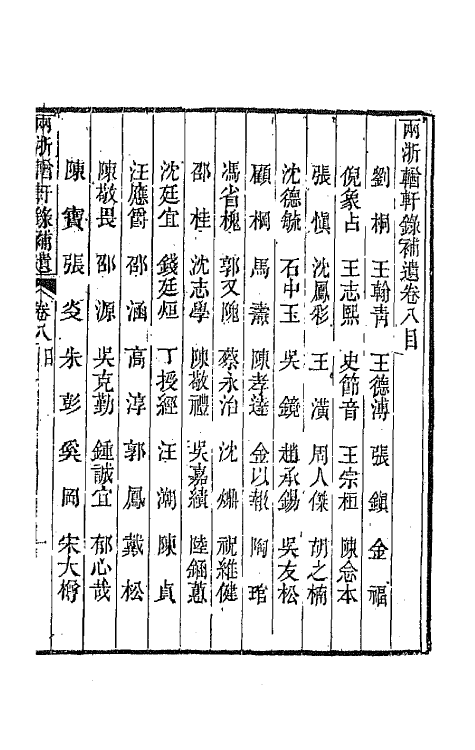 兩浙輶軒錄補遺卷八目
劉桐 王翰青 王德溥 張鎮 金福
倪象占 王志熙 史節音 王宗桓 陳念本
張愼 沈鳳彩 王潢 周人傑 胡之楠
沈德毓 石中玉 吳鏡 趙承錫 吳友松
顧桐 馬燾 陳孝逵 金以報 陶琯
馮省槐 郭又隗 蔡永治 沈爌 祝維健
邵桂 沈志學 陳敬禮 吳嘉績 陸錒蕙
沈廷宜 錢廷烜 丁授經 汪潮 陳貞
汪應爵 邵涵 高淳 郭鳳 戴松
陳敬畏 邵源 吳克勤 鍾誠宜 郁心哉
陳寶 張炎 朱彭 奚岡 宋大樽
兩浙輶軒錄補遺 卷八目 一